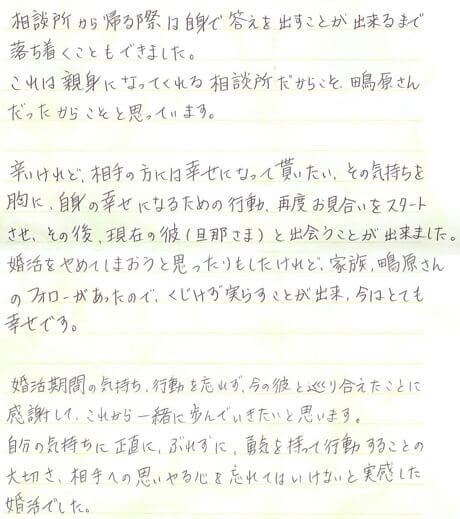 相談所から帰る際は自身で答えを出すことが出来るまで
落ち着くこともできました。
これは親身になってくれる相談所だからこそ、鴫原さん
だったからこそと思っています。
辛いけれど、相手の方には幸せになって貰いたい、その気持ちを
胸に、自身の幸せになるための行動、再度お見合いをスタート
させ、その後、現在の彼(旦那さま)と出会うことが出来ました。
婚活をやめてしまおうと思ったりもしたけれど、家族、鴫原さん
のフォローがあったので、くじけず実らすことが出来、今はとても
幸せです。
婚活期間の気持ち、行動を忘れず、今の彼と巡り合えたことに
感謝して、これから一緒に歩んでいきたいと思います。
自分の気持ちに正直に、ぶれずに、勇気を持って行動することの
大切さ、相手への思いやる心を忘れてはいけないと実感した
婚活でした。